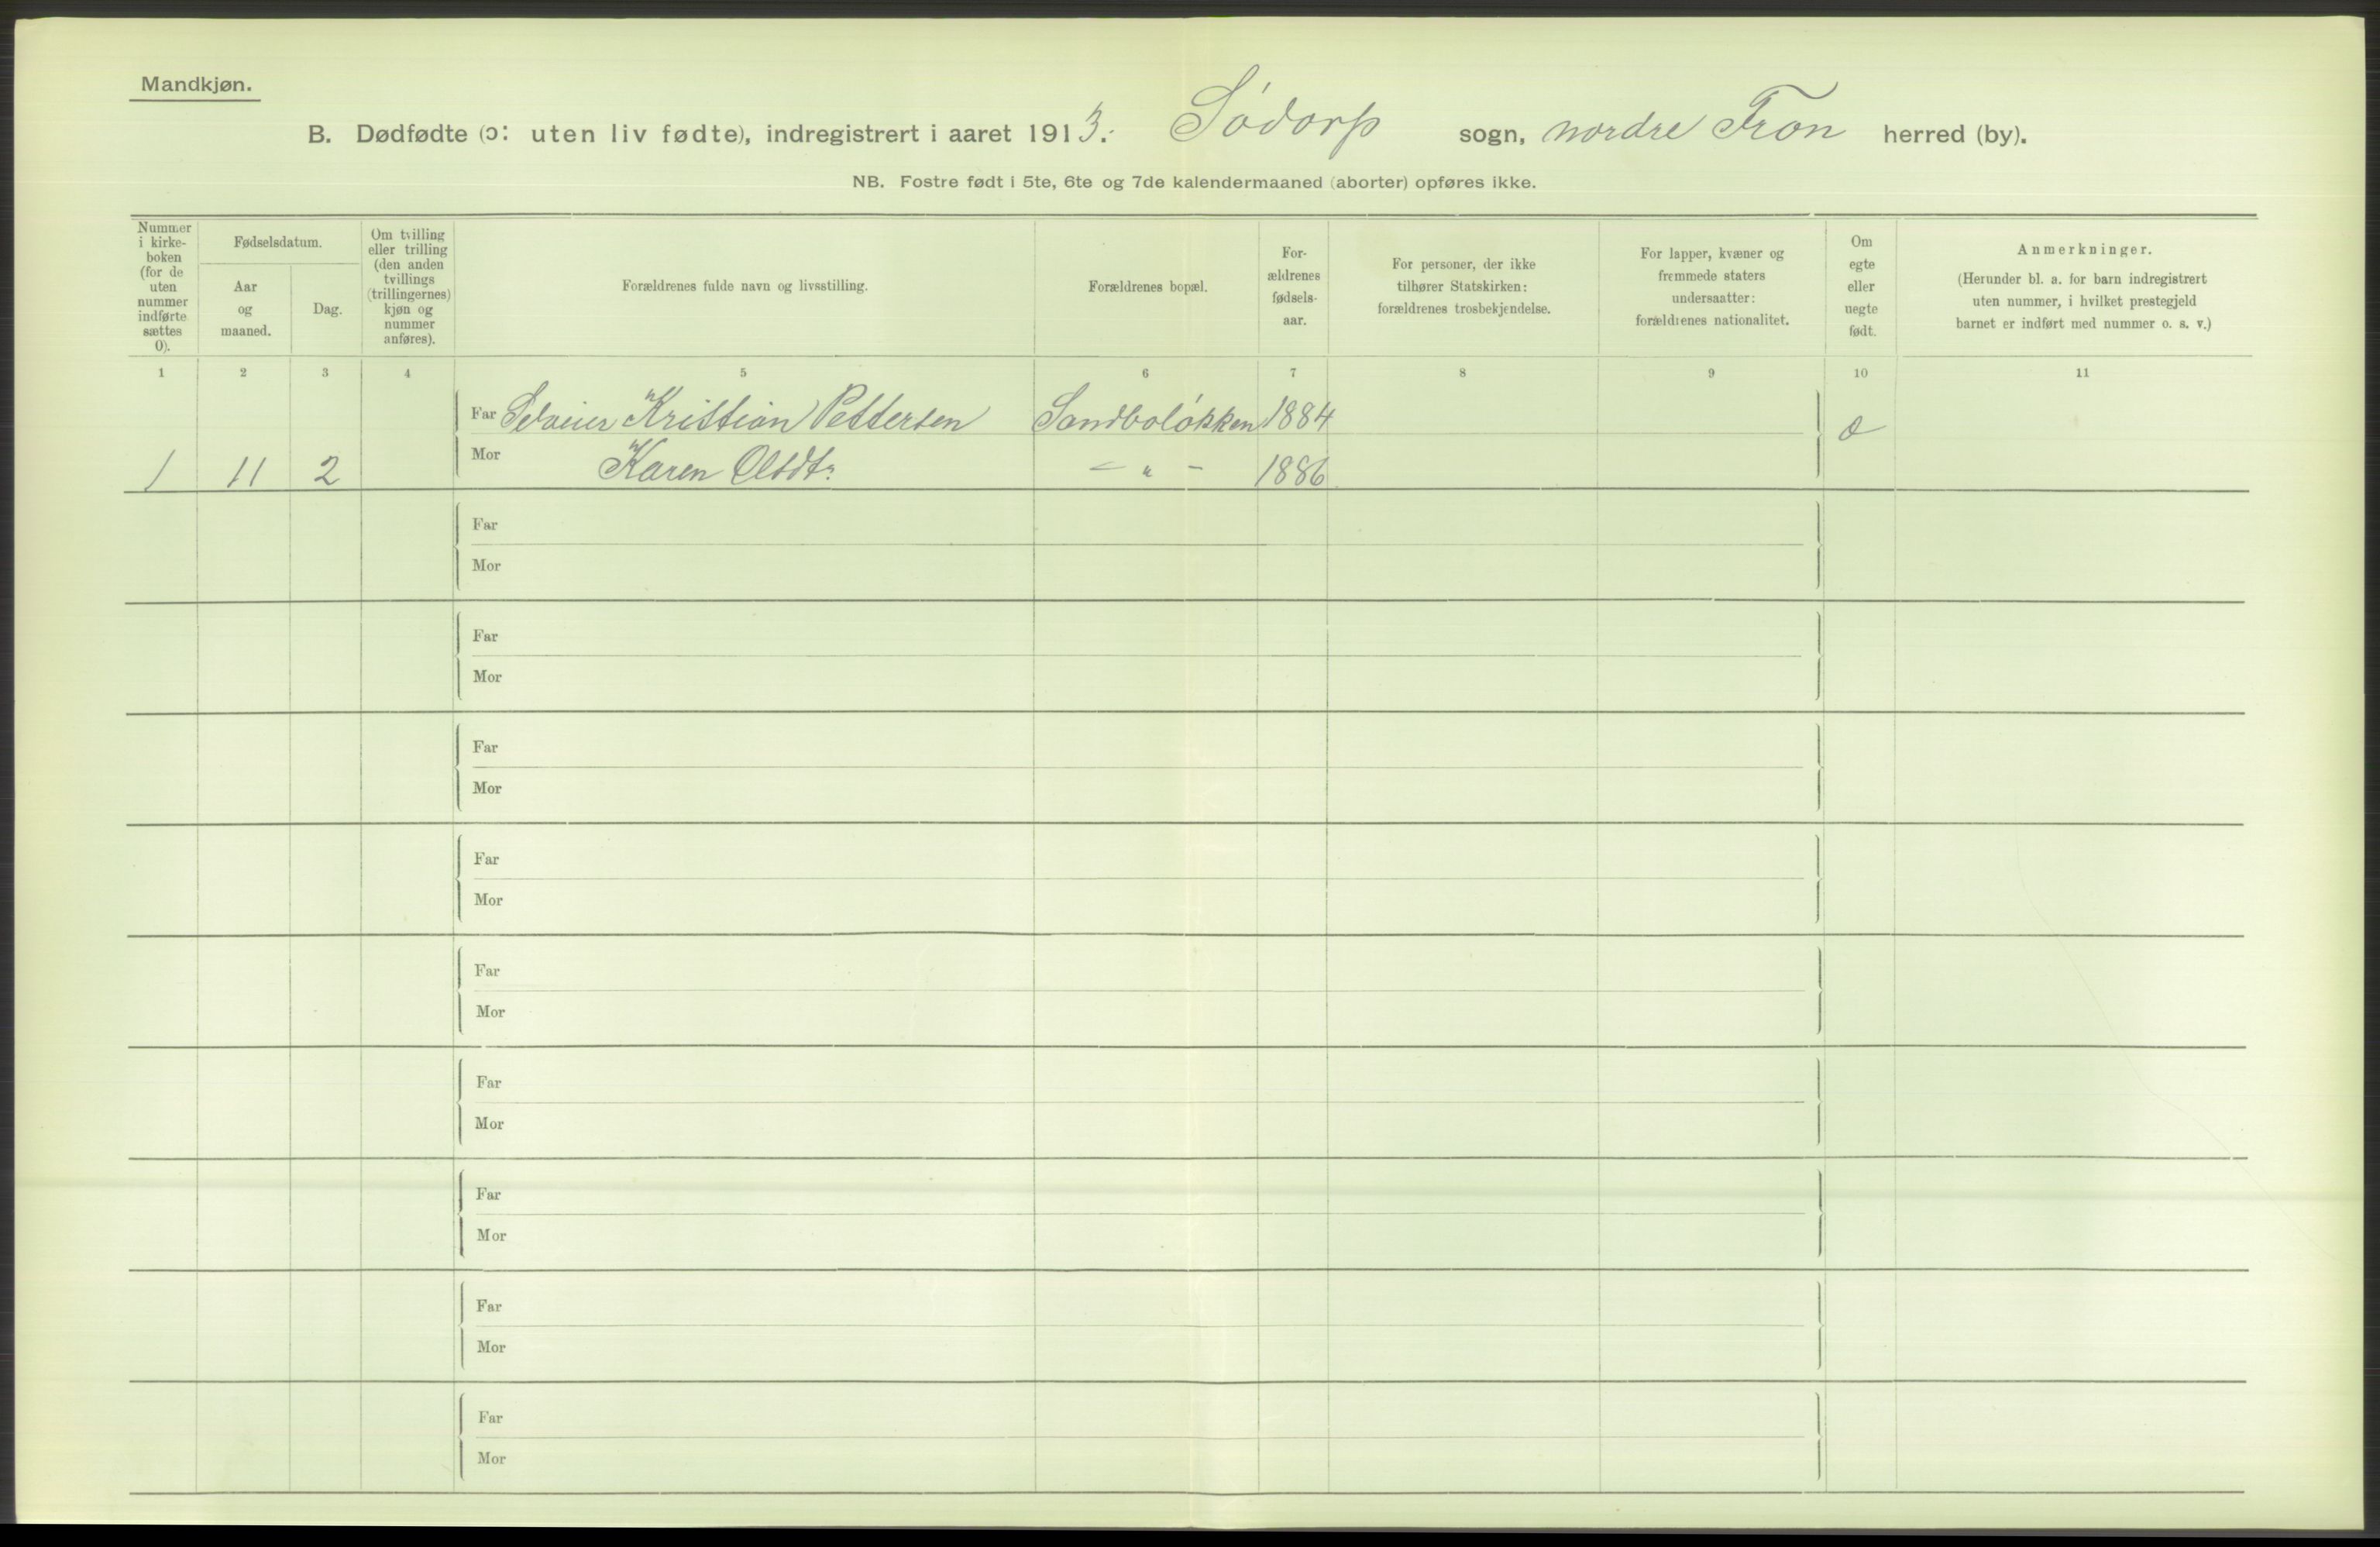 Mandkjøn.
B. Dødfødte (ɔ: uten liv fødte), indregistrert i aaret 1913. Sødorp sogn, nordre Fron herred (by).
NB. Fostre født i 5te, 6te og 7de kalendermaaned (aborter) opføres ikke.
Nummer
i kirke-
boken
(for de
uten
nummer
indførte
sættes
0).
Fødselsdatum.
Aar
og
maaned.
Dag.
Om tvilling
eller trilling
(den anden
tvillings
(trillingernes)
kjøn og
nummer
anføres).
Forældrenes fulde navn og livsstilling.
Forældrenes bopæl.
For-
ældrenes
fødsels-
aar.
For personer, der ikke
tilhører Statskirken:
forældrenes trosbekjendelse.
For lapper, kvæner og
fremmede staters
undersaatter:
forældrenes nationalitet.
Om
egte
eller
uegte
født.
Anmerkninger.
(Herunder bl. a. for barn indregistrert
uten nummer, i hvilket prestegjeld
barnet er indført med nummer o. s. v.)
1 2 3 4 5 6 7 8 9 10 11
Far Kristian Pettersen Sandboløkken 1884
1 11 2 Mor Karen Olsdtr. – „ – 1886
Far
Mor
Far
Mor
Far
Mor
Far
Mor
Far
Mor
Far
Mor
Far
Mor
Far
Mor
Far
Mor